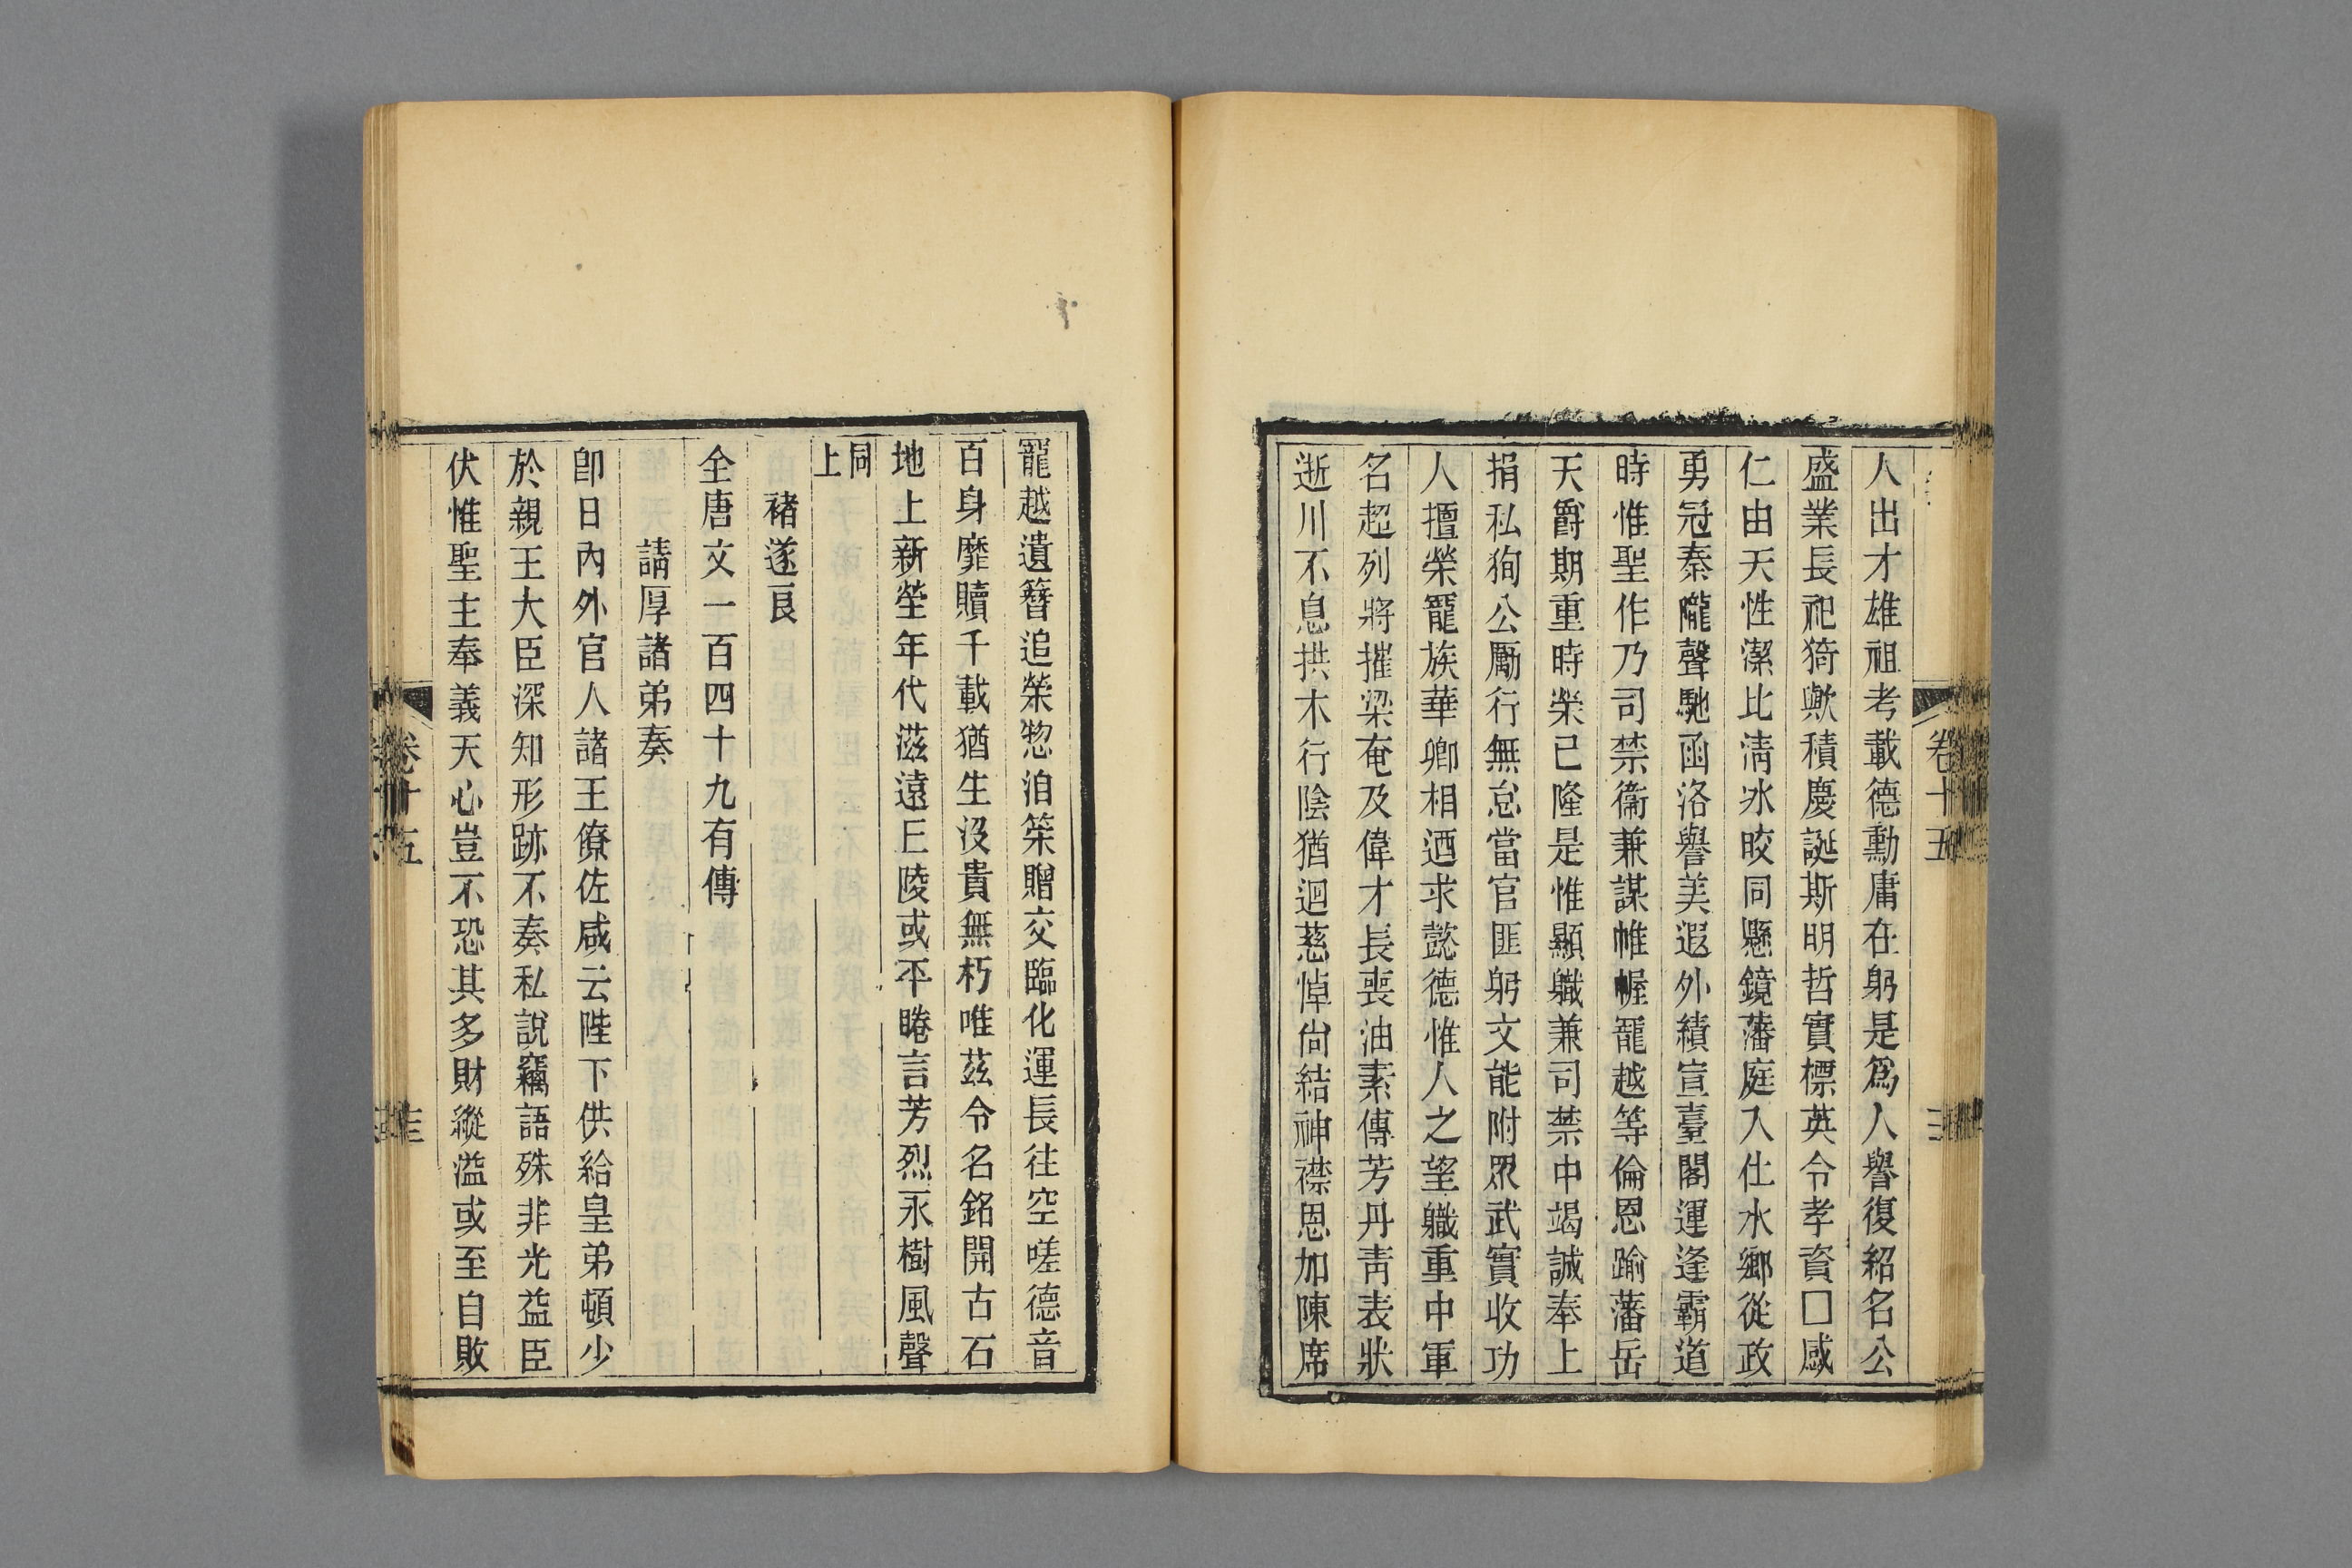 人出才雄祖考載德勳庸在躬是爲人譽復紹名公
盛業長祀猗歟積慶誕斯明哲實標英令孝資□感
仁由天性潔比淸氷皎同懸鏡藩庭入仕水鄉從政
勇冠秦隴聲馳函洛譽美遐外績宣臺閣運逢霸道
時惟聖作乃司禁衞兼謀帷幄寵越等倫恩踰藩岳
天爵期重時榮已隆是惟顯職兼司禁中竭誠奉上
捐私狥公勵行無怠當官匪躬文能附眾武實收功
人擅榮寵族華卿相迺求懿德惟人之望職重中軍
名超列將摧梁奄及偉才長喪油素傳芳丹靑表狀
逝川不息拱木行陰猶迴慈悼尙結神襟恩加陳席
寵越遺簪追榮惣泊筞贈交臨化運長往空嗟德音
百身靡贖千載猶生沒貴無朽唯茲令名銘開古石
地上新塋年代滋遠丘陵或平睠言芳烈永樹風聲
同上
褚遂良
全唐文一百四十九有傳
請厚諸弟奏
卽日內外官人諸王僚佐咸云陛下供給皇弟頓少
於親王大臣深知形跡不奏私說竊語殊非光益臣
伏惟聖主奉義天心豈不恐其多財縱溢或至自敗
卷十五